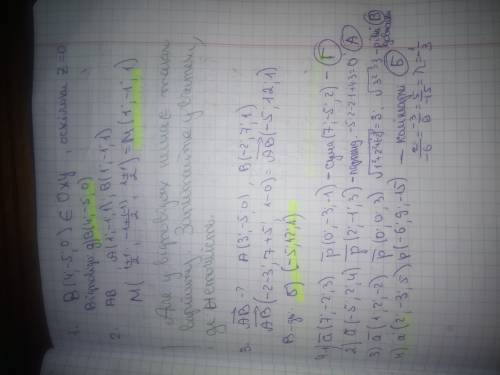 1. B(4;-5;0) ∈ Oxy, оскільки z=0
Відповідь: B(4;-5;0)
2. AB A(1;-1;1), B(1;-1;1)
M(1+1/2; -1+(-1)/2; 1+1/2) = M(1;-1;1)
Але у відповідях немає такої
варіанту. Запитайте у вчителя,
де
3. AB-? A(3;-5;0), B(-2;7;1)
AB(-2-3; 7+5; 1-0) = AB(-5;12;1)
В-дь: б) (-5;12;1)
4. 1) a(7;-2;3) p(0;-3;-1) - сума (7;-5;2) - Г
2) a(-5;2;4) p(2;-1;3) -5·2-2·1+4·3=0 А
3) a(1;2;-2) p(0;0;3) √1²+2²+(-2)²=3; √3²=3 - рівні В
4) a(2;-3;5) p(-6;9;-15) - колінеарні Б
2/-6 = -3/9 = 5/-15 = -1/3